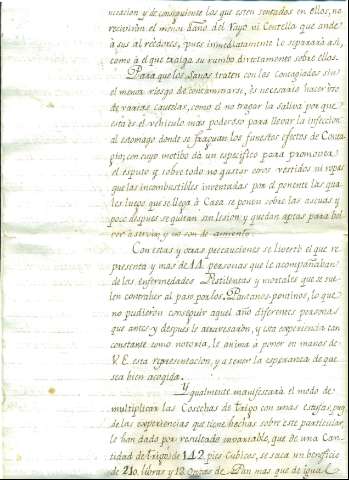 nicacion y de consiguiente los que esten sentados en ellos, no
recivirán el menor daño del Rayo ni Centella que ande
á sus alrededores, pues inmediatamente le separará asi,
como á el que traiga su rumbo directamente sobre ellos.
Para que los Sanos traten con los contagiados sin
el menor riesgo de contaminarse, es necesario hacer uso
de varias cautelas, como el no tragar la saliva porque
esta es el vehiculo mas poderoso para llevar la infeccion
al estomago donde se fraguan los funestos efectos de Conta-
gio; con cuyo motivo dá un especifico para promover
el esputo y sobre todo no gastar otros vestidos ni ropas
que las incombustibles inventadas por el ponente las qua-
les luego que se llega á Casa se ponen sobre las ascuas y
poco despues se quitan sin lesion y quedan aptas para bol-
ver á servir y no son de amianto.
Con estas y otras precauciones se livertó el que re-
presenta y mas de 14 personas que le acompañaban
de las enfermedades Pestilentas y mortales que se sue-
len contraher al paso por los Pantanos pontinos, lo que
no pudieron conseguir aquel año diferentes personas
que antes y despues le atravesaron, y esta experiencia tan
constante como notoria, le anima á poner en manos de
V.E. esta representacion, y a tener la esperanza de que
sea bien acogida.
Ygualmente manifestará el modo de
multiplicar las Cosechas de Trigo con unas pues
de las experiencias que tiene hechas sobre este particular,
le han dado por resultado invariable, que de una Can-
tidad de Trigo de 142 pies Cubicos, se saca un beneficio
de 210. libras y 12 Onzas de Pan mas que de igual